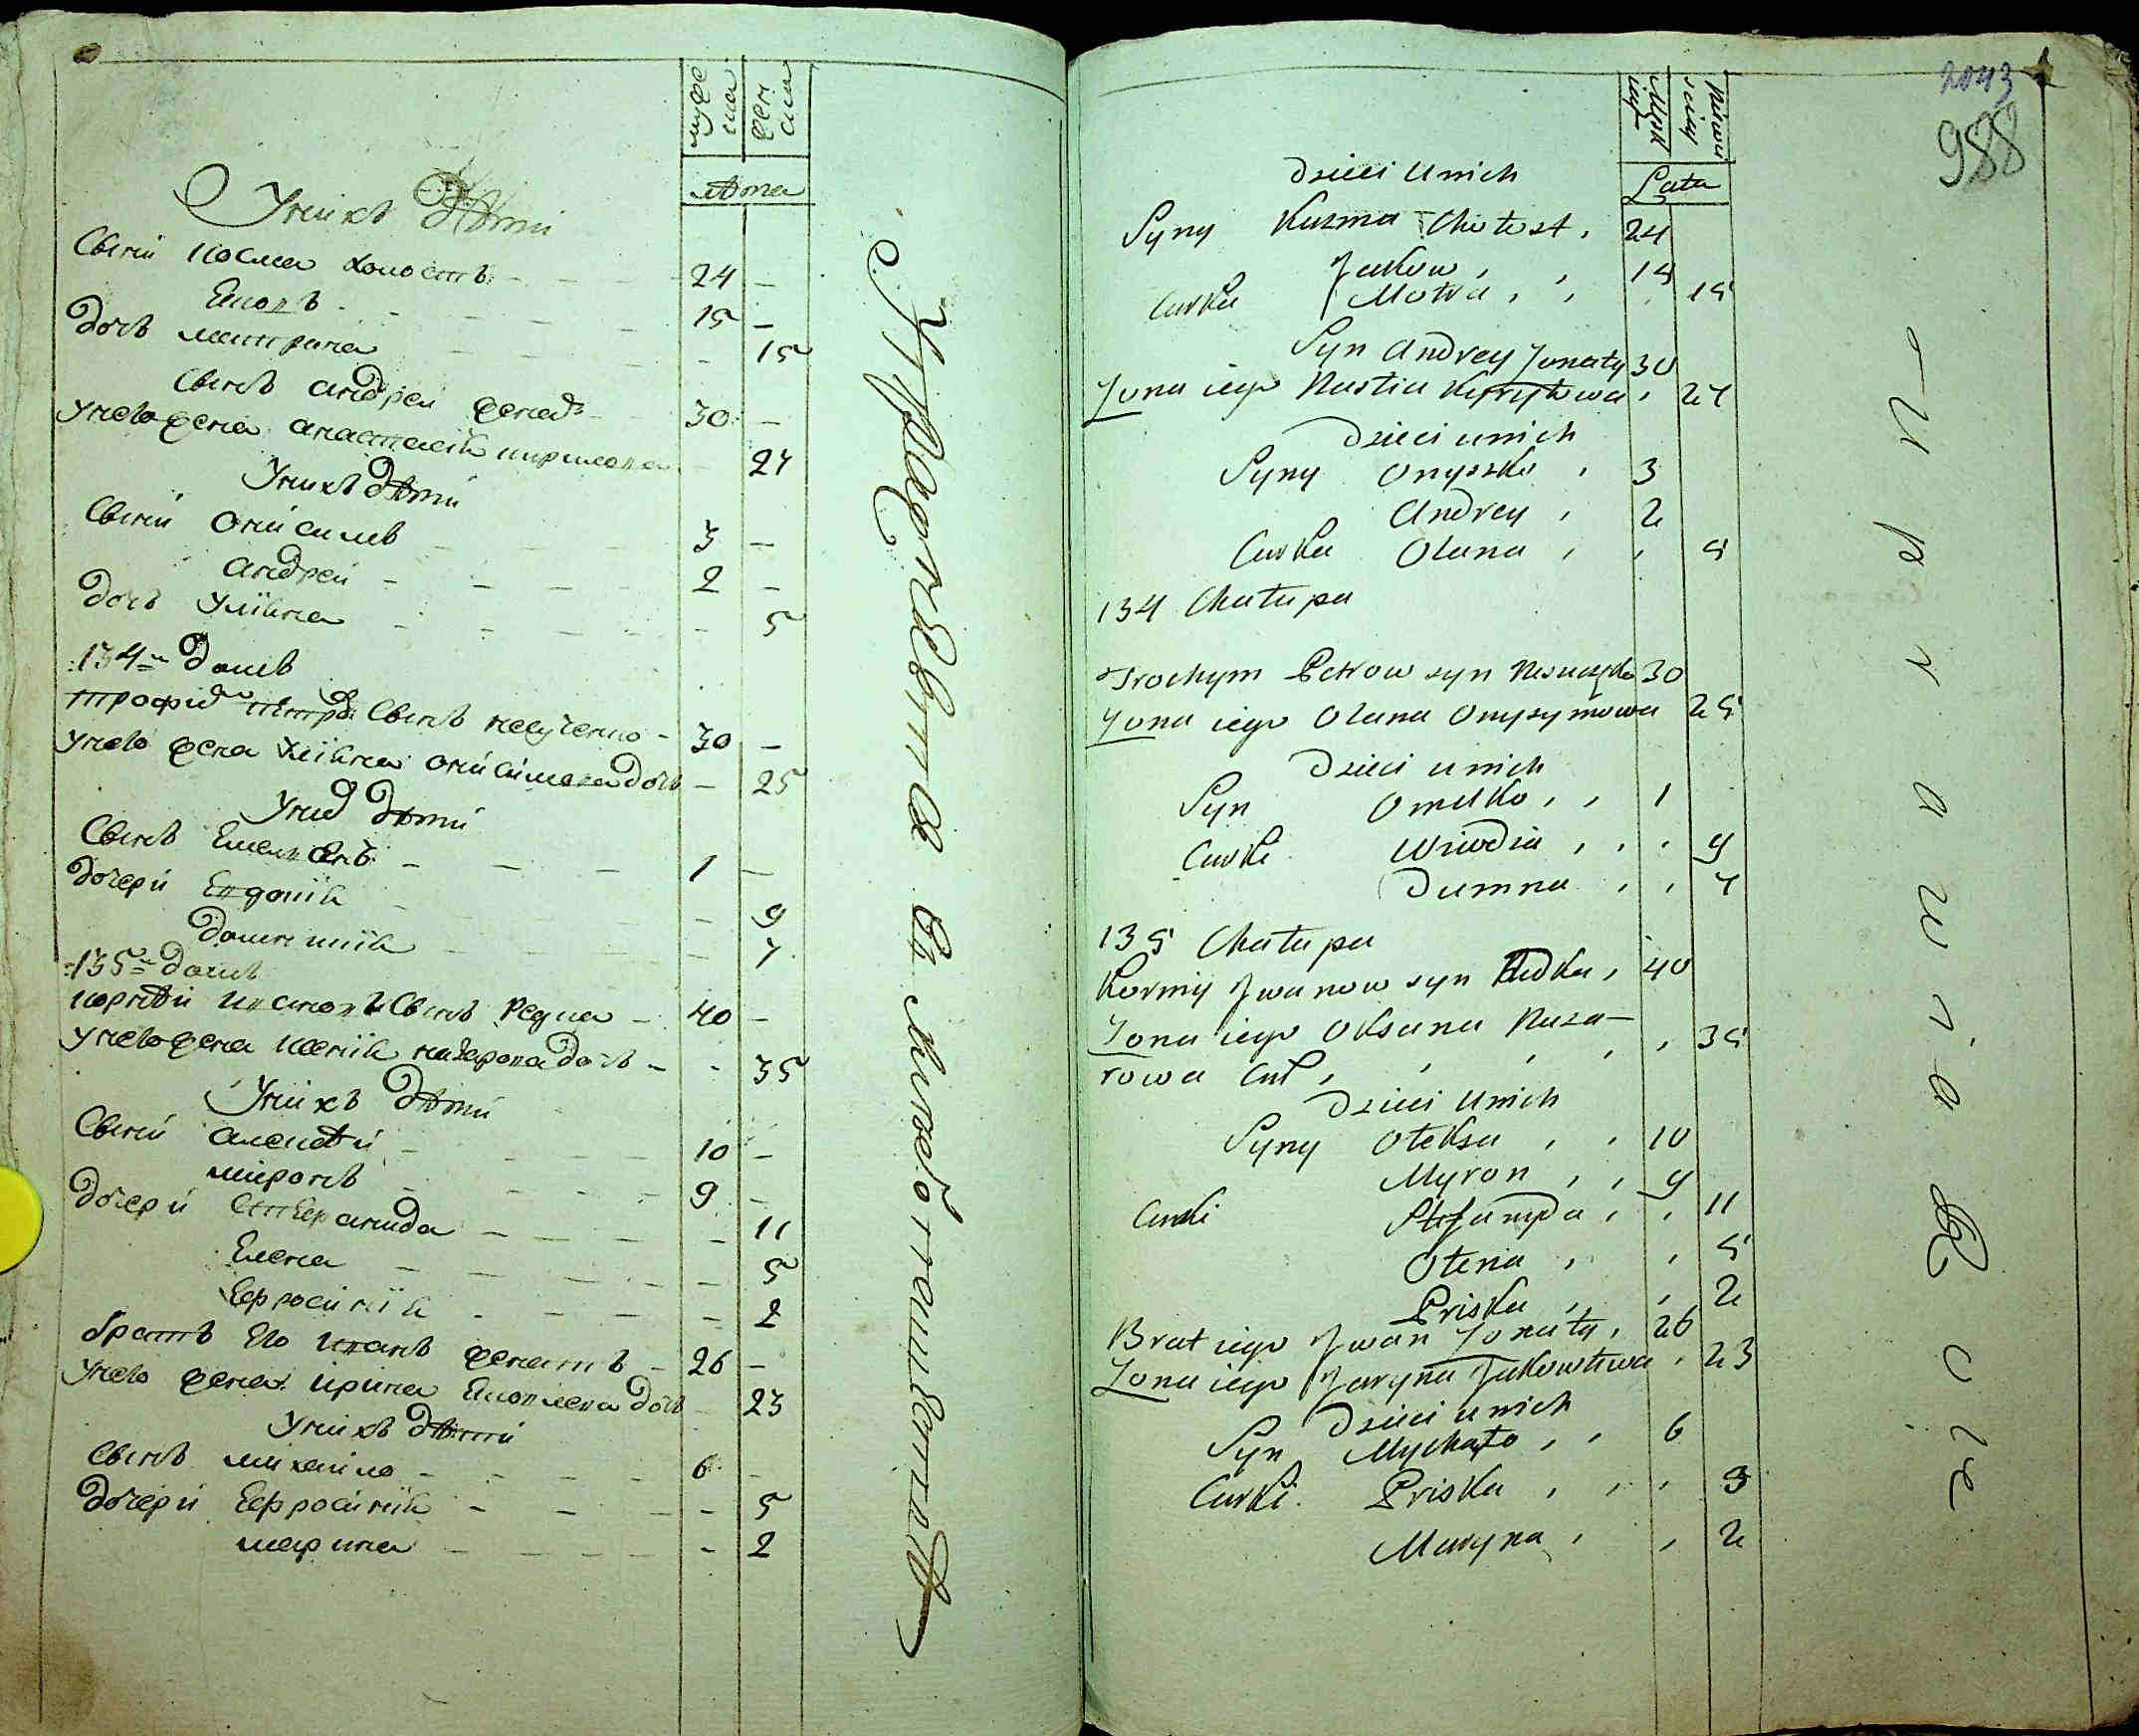 мужес
ка
жен
ска
лѣта
У них дѣти
Сыны Косма холостъ 24 —
Яковъ 15 —
Дочь Матрина — 15
Сынъ Андреи женат 30 —
У него жена Анастасия Кирилова 27
У нихъ дѣти
Сыны Онисимъ 3 —
Андреи 2 —
Дочь Улияна — 5
134 Домъ
Трофим Петров Сынъ 30 —
У него жена Улияна Онисимова Дочь — 25
У них дѣти
Сынъ Емелянъ 1 —
Дочери Евдокия — 9
Домникия — 7
135 Домъ
Корнѣи Ивановъ Сынъ Редка 40 —
У него жена Ксения Назарова Дочь — 35
У нихъ Дѣти
Сыны Алексѣи 10 —
Миронъ 9 —
Дочери — 11
Елена — 5
Ефросиния — 2
братъ Его Иванъ женатъ 26 —
У него жена Ирина Яковлева Дочь 23
У нихъ Дѣти
Сынъ Михаило 6 —
Дочери Ефросиния — 5
Марина — 2
2043
988
Męsk
iey
Lata
Dzieci u nich
Syny Kuzma Chołost, 24
Jakow, 15
Curka Motra, 15
Syn Andrey Żonaty 30
Żona iego Nastia Kyryłowa, 27
Dzieci u nich
Syny Onyszko, 3
Andrey, 2
Curka Olana, 5
134 Chałupa
Trochym Petrow syn 30
Żona iego Olana Onysymowa 25
Dzieci u nich
Syn Omelko, 1
Curki Wiwdia, 9
Dumna, 7
135 Chałupa
Korniy Jwanow syn Redka, 40
Żona iego Oksana Naza-
rowa Cur, 35
Dzieci u nich
Syny Oleksa, 10
Myron, 9
Curki 11
Olena, 5
Priska, 2
Brat iego Jwan Żonaty, 26
Żona iego Jaryna Jakowlewa, 23
Dzieci u nich
Syn Mychayło, 6
Curki Priska, 5
Maryna, 2